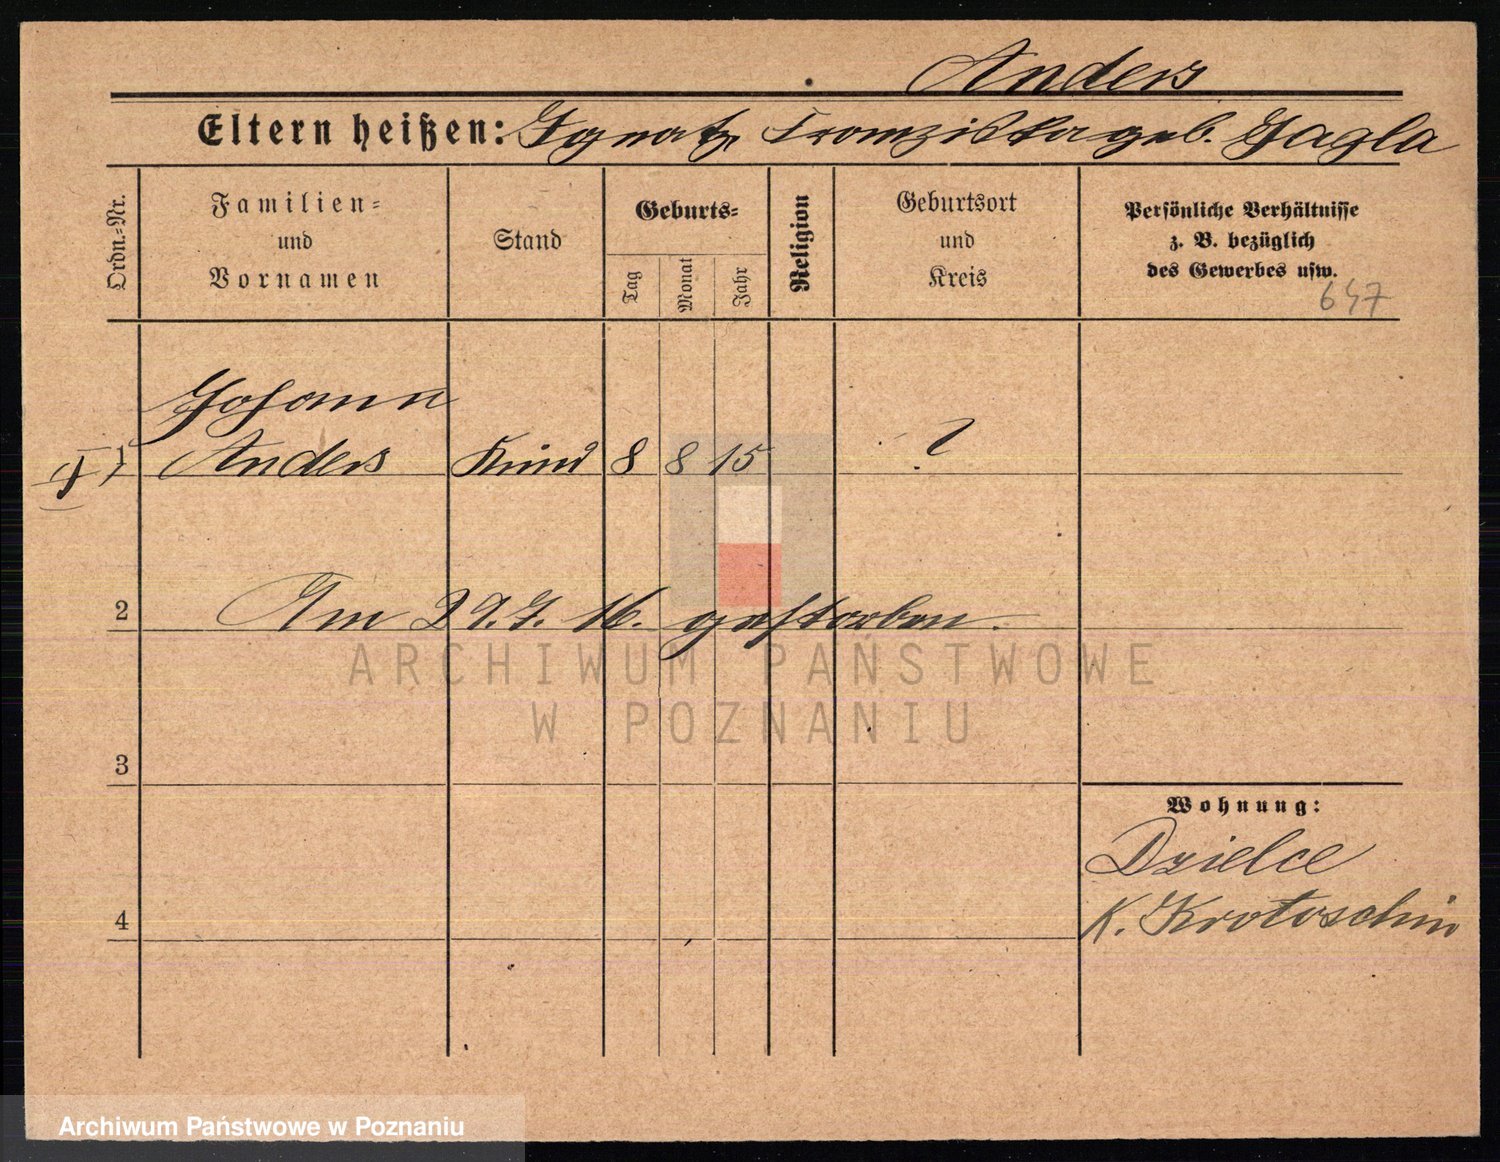 Anders
Eltern heißen: Ignatz, Franziska geb. Jagla
Ordn.-Nr.
Familien- und Vornamen
Stand
Geburts-
Tag
Monat
Jahr
Religion
Geburtsort und Kreis
Persönliche Verhältnisse
z. B. bezüglich
des Gewerbes usw.
647
Johann
1 Anders Kind 8 8 15 ?
2 Am 29.7.16. gestorben.
ARCHIWUM PAŃSTWOWE
W POZNANIU
3
Wohnung:
Dzielce
4
K. Krotoschin
Archiwum Państwowe w Poznaniu